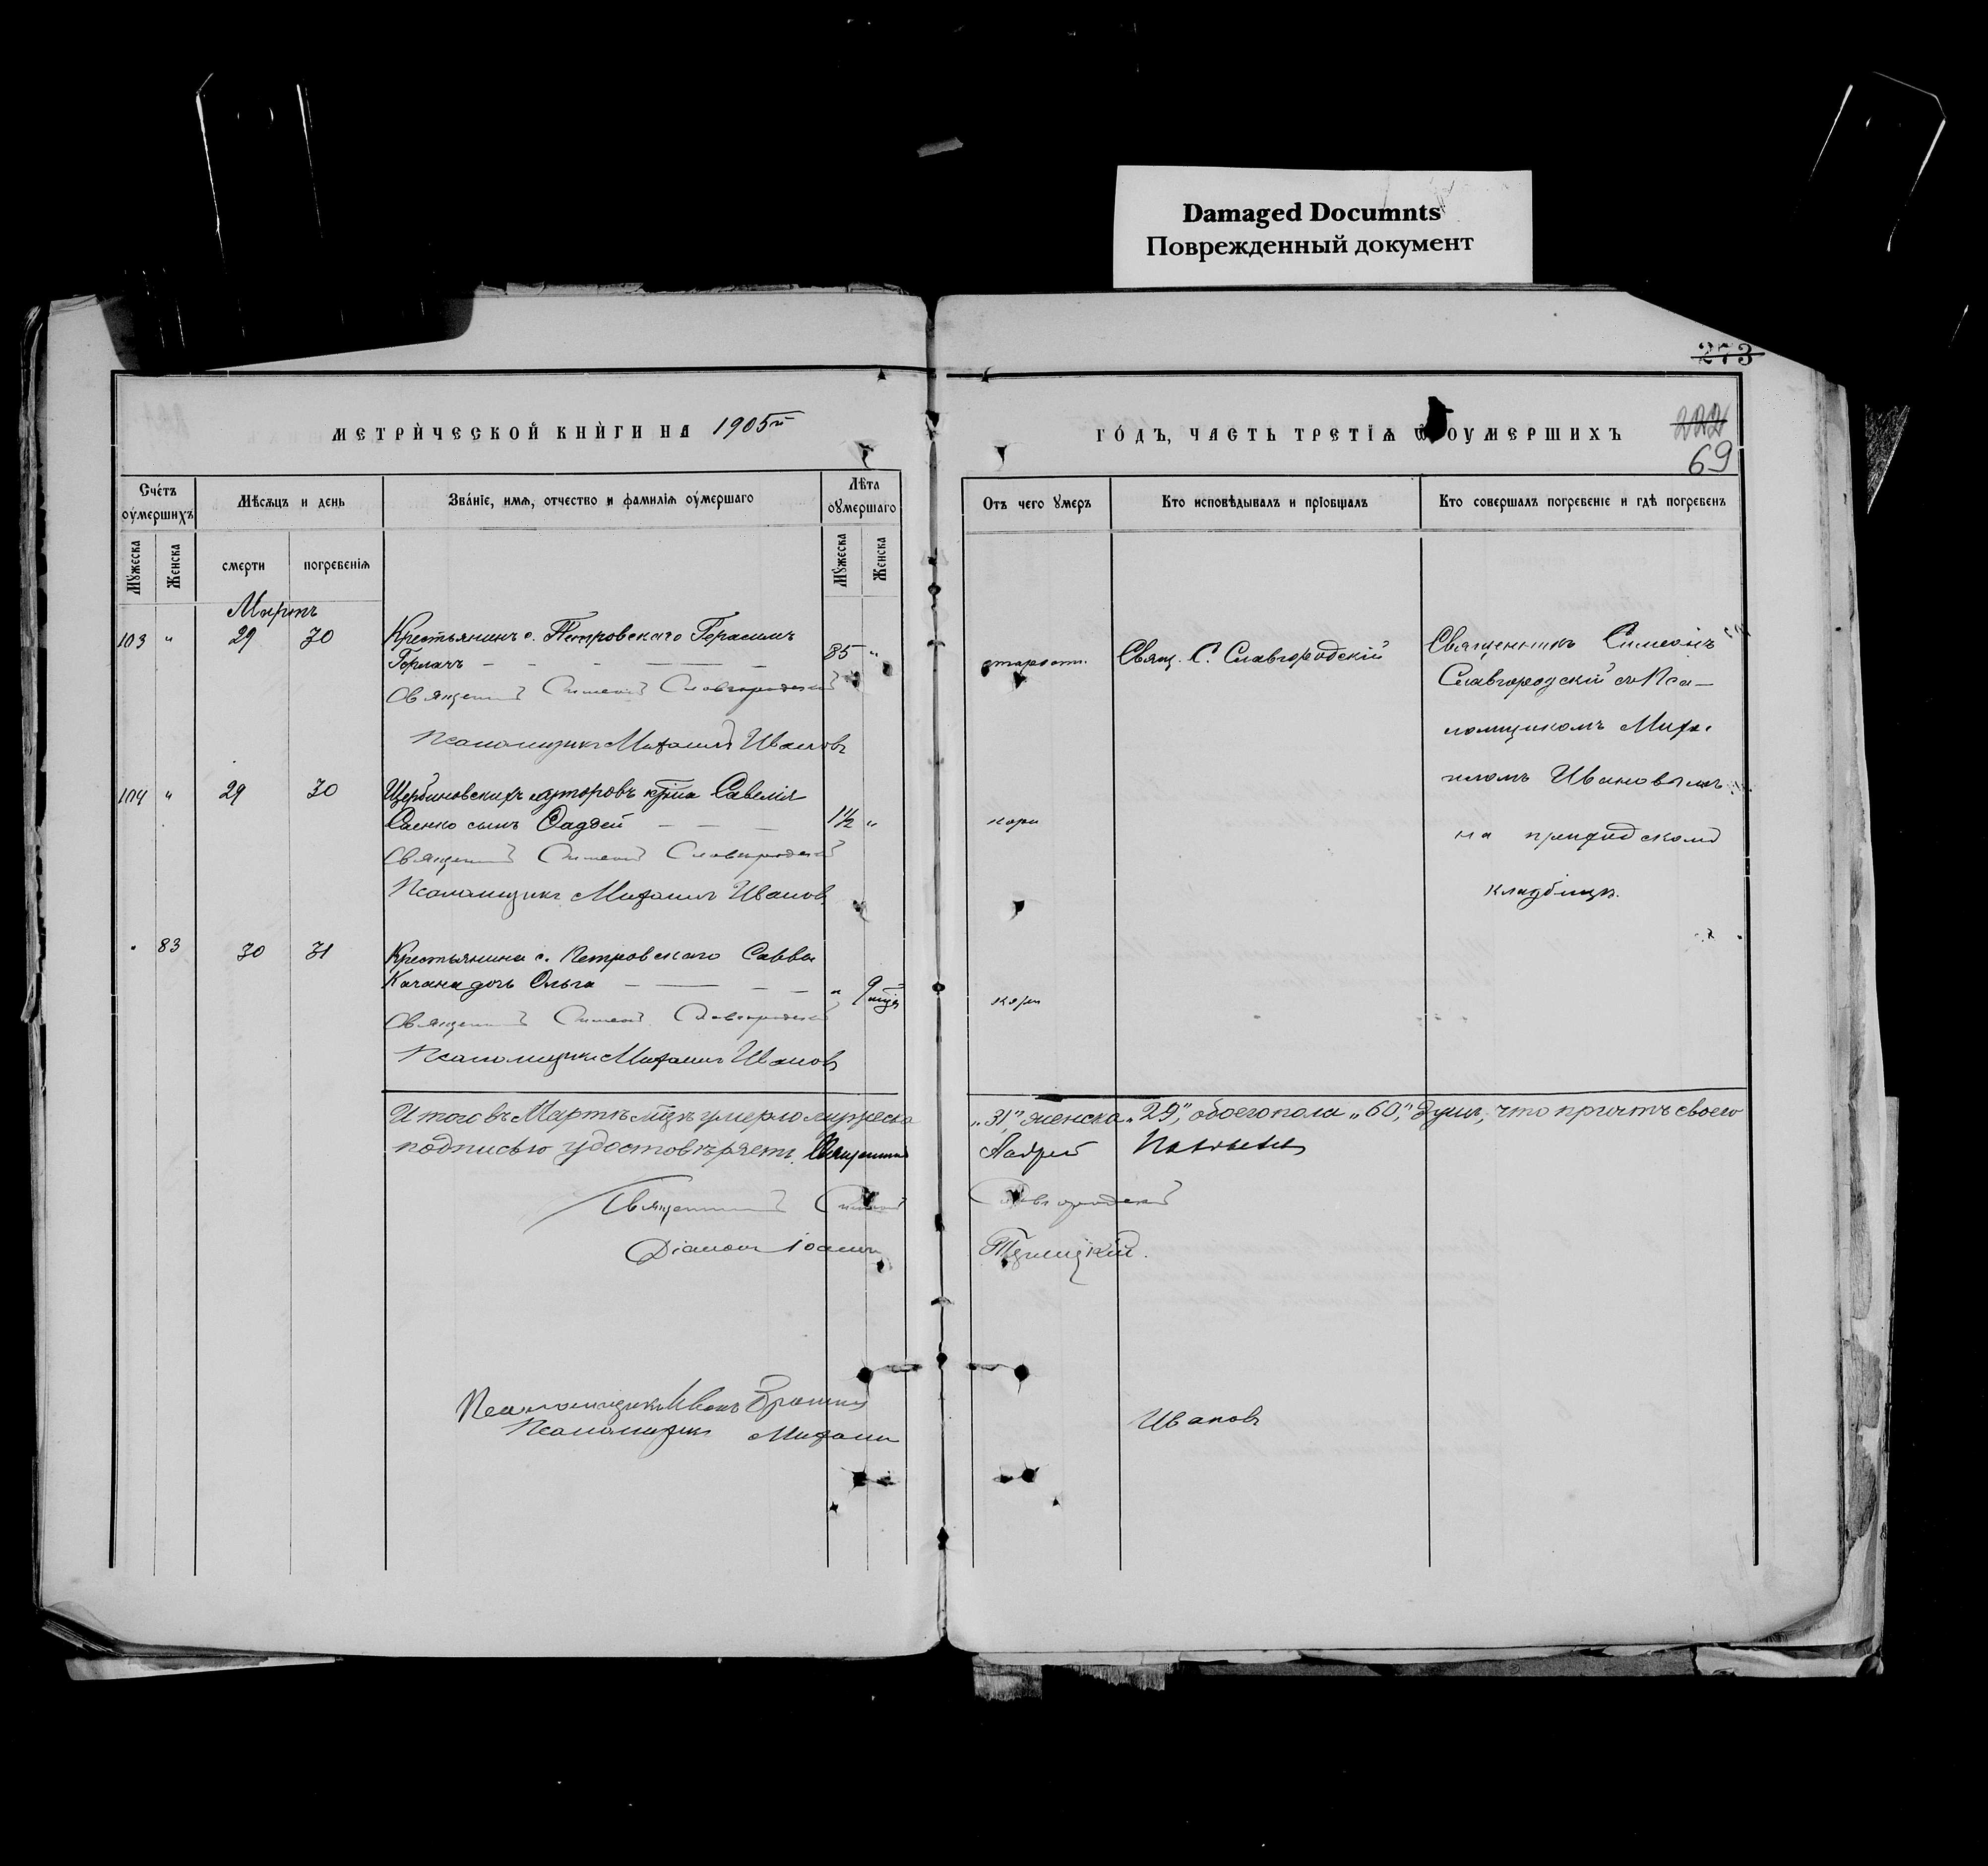 Damaged Documnts
Поврежденный документ
273
МЕТРИЧЕСКОЙ КНИГИ НА 1905й
ГОДЪ, ЧАСТЬ ТРЕТІЯ Ѿ ОУМЕРШИХЪ
222
69
Счетъ оумершихъ
Мѣсяцъ и день
Званіе, имя, отчество и фамилія оумершаго
Лѣта оумершаго
Мужеска
Женска
смерти
погребенія
Мужеска
Женска
Отъ чего умеръ
Кто исповѣдывалъ и пріобщалъ
Кто совершалъ погребеніе и гдѣ погребенъ
Мартъ
103 " 29 30 Крестьянинъ с. Петровскаго Герасимъ
Горлачъ 85 "
старост. Свящ. С. Славгородскій
Священникъ Симеонъ
Славгородскій съ Пса-
ломщикомъ Миха-
иломъ Ивановымъ
на приходскомъ
кладбищѣ.
Священникъ Симеонъ Славгородскій
Псаломщикъ Михаилъ Ивановъ
104 " 29 30 Щербиновскихъ хуторовъ кр-на Савелія
Саенко сынъ Фаддей 1½ "
кори
Священникъ Симеонъ Славгородскій
Псаломщикъ Михаилъ Ивановъ
" 83 30 31 Крестьянина с. Петровскаго Саввы
Качана дочь Ольга " 9 мцв
кори
Священникъ Симеонъ Славгородскій
Псаломщикъ Михаилъ Ивановъ
Итого въ Мартѣ мцѣ умерло мужеска „31", женска „29", обоего пола „60", душъ, что причтъ своею
подписью удостовѣряетъ. Священникъ Андрей
Священникъ Симеонъ Славгородскій
Діаконъ Іоаннъ
Псаломщикъ Иванъ
Псаломщикъ Михаилъ Ивановъ